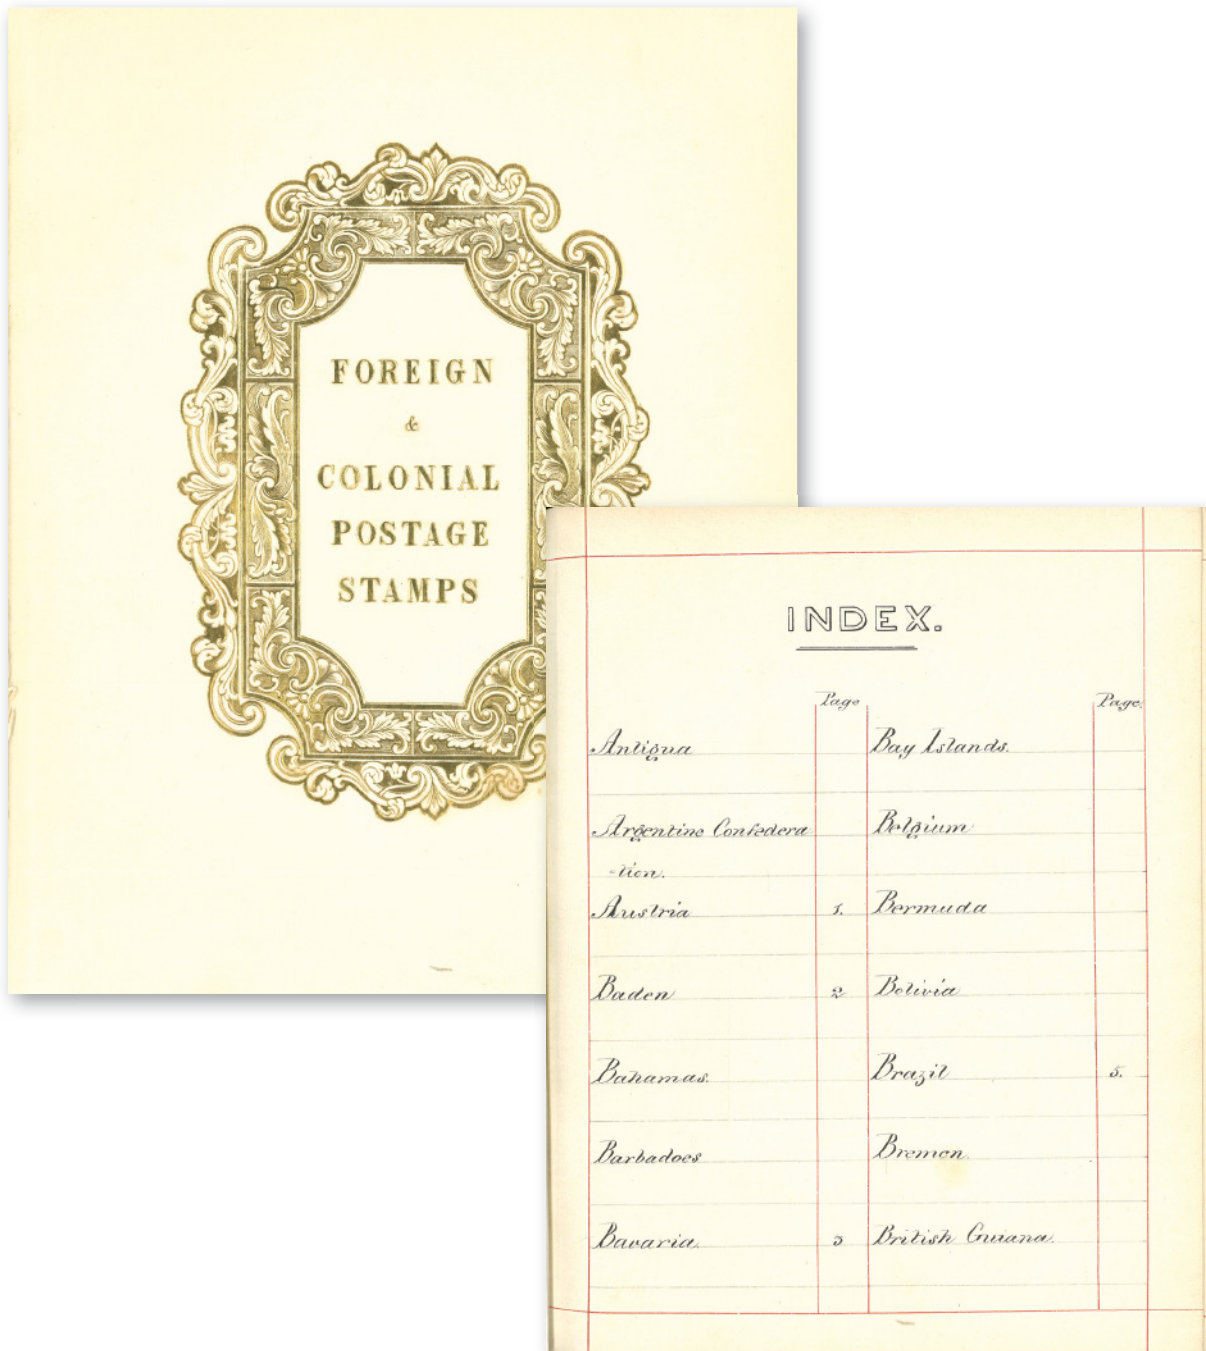 FOREIGN
&
COLONIAL
POSTAGE
STAMPS
INDEX.
Page Page.
Antigua Bay Islands.
Argentine Confedera Belgium
-tion.
Austria 1. Bermuda
Baden 2 Bolivia
Bahamas. Brazil 5.
Barbadoes Bremen.
Bavaria. 3 British Guiana.